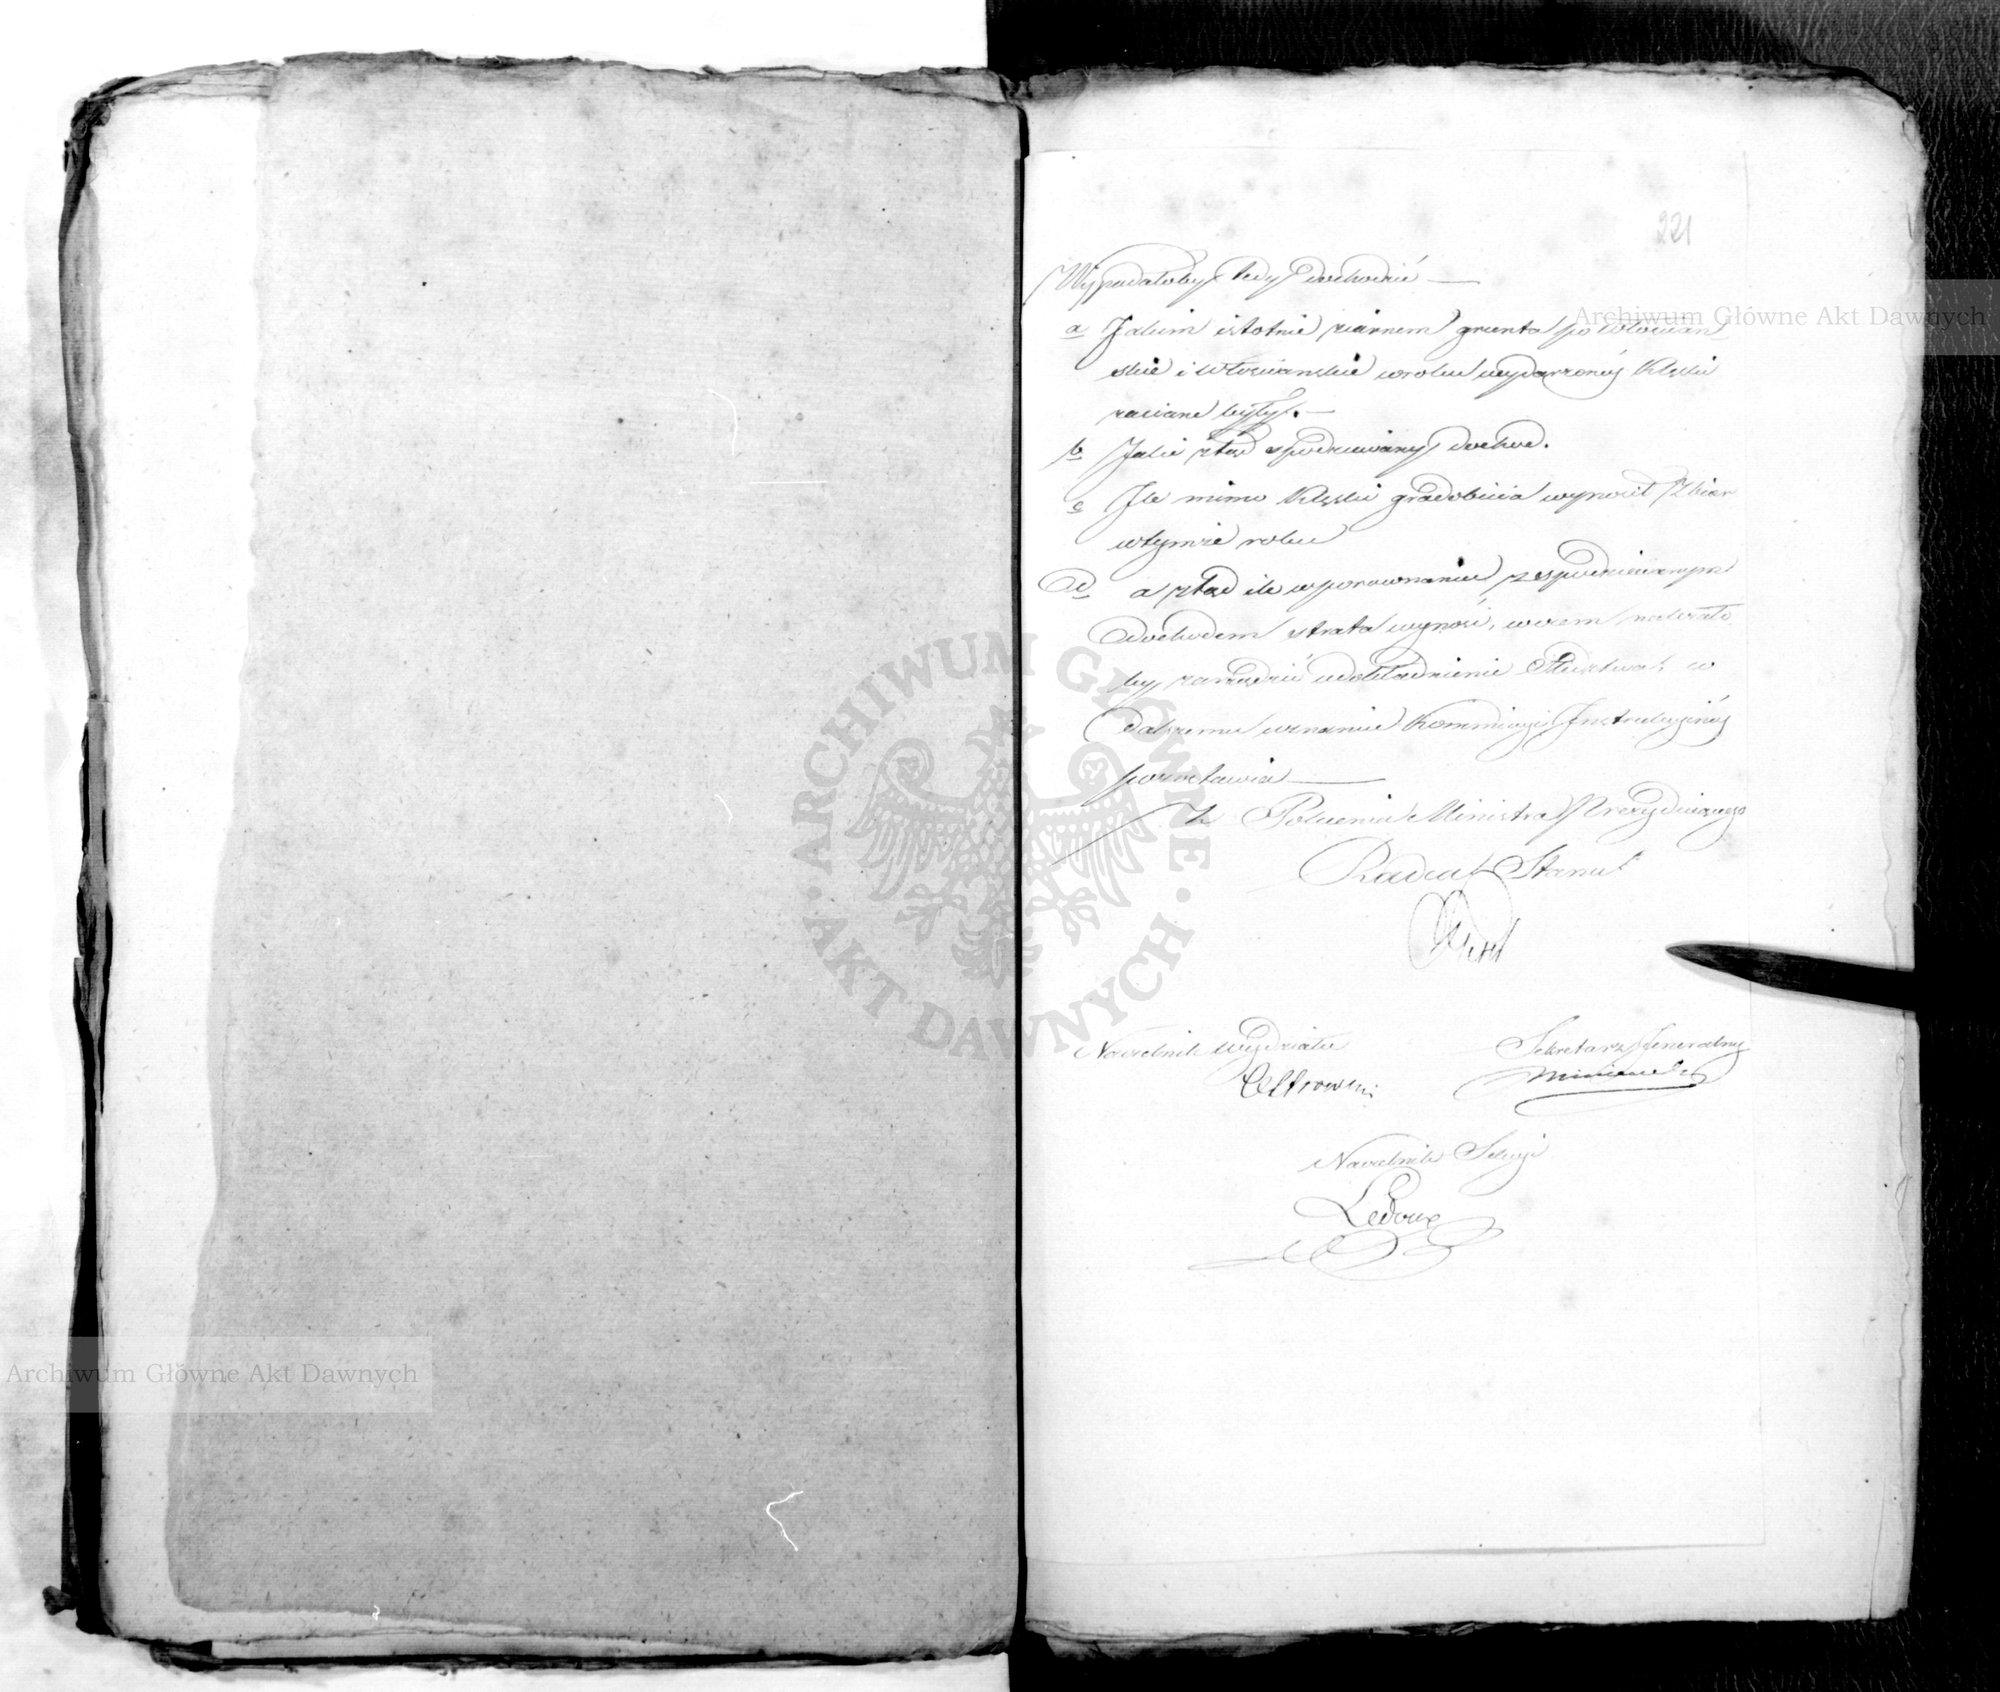 221
Wypadałoby tedy dochodzić —
a Jakim istotnie ziarnem grunta powłościań
skie i włościańskie w roku wydarzonéj klęski
zasiane były. —
b Jaki ztąd spodziewany dochod.
c Ile mimo klęski gradobicia wynosił zbiór
w tymże roku
d a ztąd ile w porownaniu z spodziewanym
dochodem strata wynosi, w czem należało
by zarządzić udokładnienie śledztwa, w
dalszemu uznaniu Kommissyi Instrukcyjnéj
pozostawia —
Z Polecenia Ministra Prezydującego
Radca Stanu
Naczelnik Wydziału
Sekretarz Jeneralny
Ostrowski
Naczelnik Sekcyi
Ledoux
Archiwum Główne Akt Dawnych
Archiwum Główne Akt Dawnych
ARCHIWUM GŁÓWNE · AKT DAWNYCH ·